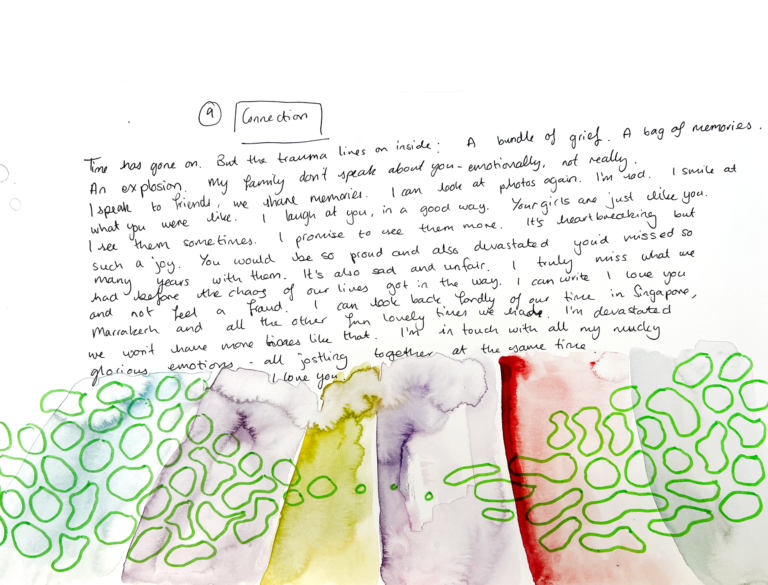 9 Connection
Time has gone on. But the trauma lives on inside: A bundle of grief. A bag of memories.
An explosion. My family don't speak about you - emotionally, not really.
I speak to friends, we share memories. I can look at photos again. I'm sad. I smile at
what you were like. I laugh at you, in a good way. Your girls are just like you.
I see them sometimes. I promise to see them more. It's heartbreaking but
such a joy. You would be so proud and also devastated you'd missed so
many years with them. It's also sad and unfair. I truly miss what we
had before the chaos of our lives got in the way. I can write I love you
and not feel a fraud. I can look back fondly of our time in Singapore,
Marrakech and all the other fun lovely times we had. I'm devastated
we won't have more like that. I'm in touch with all my mucky
glorious emotions - all jostling together at the same time.
I love you.